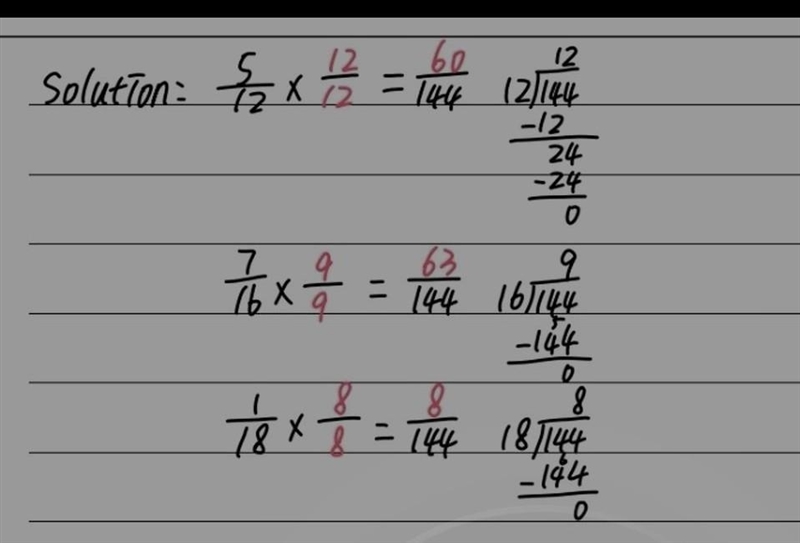 Solution: 5/12 × 12/12 = 60/144
12
12)144
-12
24
-24
0
7/16 × 9/9 = 63/144
9
16)144
5
-144
0
1/18 × 8/8 = 8/144
8
18)144
6
-144
0